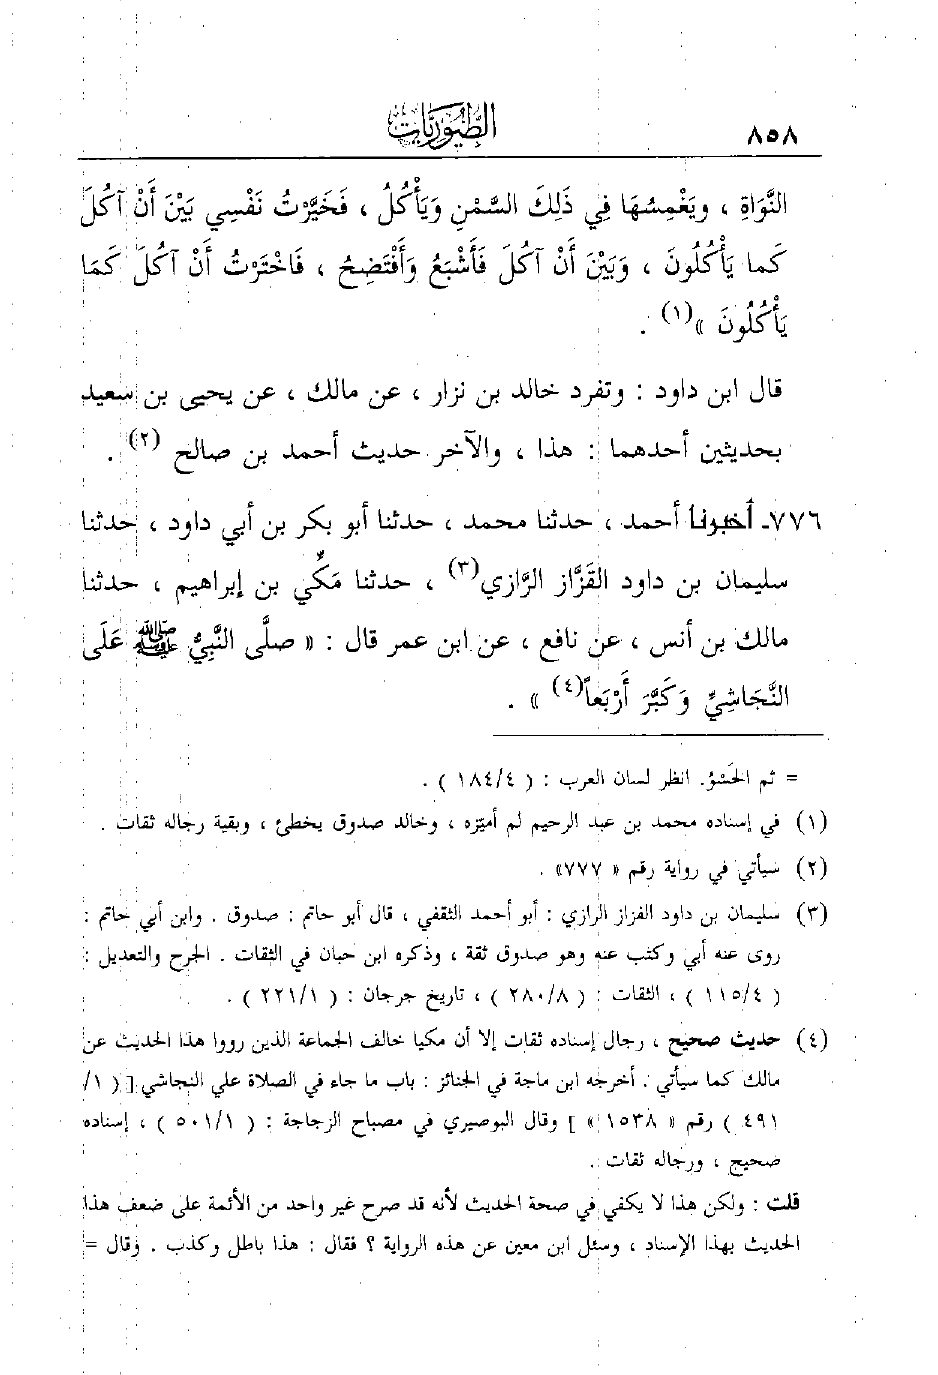 ٨٥٨
الطيوريات
النَّوَاةِ ، ويَغْمِسُهَا فِي ذَلِكَ السَّمْنِ وَيَأْكُلُ ، فَخَيَّرْتُ نَفْسِي بَيْنَ أَنْ آكُلَ
كَما يَأْكُلُونَ ، وَبَيْنَ أَنْ آكُلَ فَأَشْبَعُ وَأَفْتَضِحُ ، فَاخْتَرْتُ أَنْ آكُلَ كَمَا
يَأْكُلُونَ »(١) .
قال ابن داود : وتفرد خالد بن نزار ، عن مالك ، عن يحيى بن سعيد
بحديثين أحدهما : هذا ، والآخر حديث أحمد بن صالح (٢) .
٧٧٦ـ أخبرنا أحمد ، حدثنا محمد ، حدثنا أبو بكر بن أبي داود ، حدثنا
سليمان بن داود القَزَّاز الرَّازي(٣) ، حدثنا مَكِّي بن إبراهيم ، حدثنا
مالك بن أنس ، عن نافع ، عن ابن عمر قال : « صلَّى النَّبِيُّ ﷺ عَلَى
النَّجَاشِيِّ وَكَبَّرَ أَرْبَعاً(٤) » .
= ثم الحَسْوُ. انظر لسان العرب : ( ١٨٤/٤ ) .
(١) في إسناده محمد بن عبد الرحيم لم أميّزه ، وخالد صدوق يخطئ ، وبقية رجاله ثقات .
(٢) سيأتي في رواية رقم « ٧٧٧» .
(٣) سليمان بن داود الفزاز الرازي : أبو أحمد الثقفي ، قال أبو حاتم : صدوق . وابن أبي حاتم :
روى عنه أبي وكتب عنه وهو صدوق ثقة ، وذكره ابن حبان في الثقات . الجرح والتعديل :
( ١١٥/٤ ) ، الثقات : ( ٢٨٠/٨ ) ، تاريخ جرجان : ( ٢٢١/١ ) .
(٤) حديث صحيح ، رجال إسناده ثقات إلا أن مكيا خالف الجماعة الذين رووا هذا الحديث عن
مالك كما سيأتي . أخرجه ابن ماجة في الجنائز : باب ما جاء في الصلاة علي النجاشي [ ( ١/
٤٩١ ) رقم « ١٥٣٨ » ] وقال البوصيري في مصباح الزجاجة : ( ٥٠١/١ ) ، إسناده
صحيح ، ورجاله ثقات .
قلت : ولكن هذا لا يكفي في صحة الحديث لأنه قد صرح غير واحد من الأئمة على ضعف هذا
الحديث بهذا الإسناد ، وسئل ابن معين عن هذه الرواية ؟ فقال : هذا باطل وكذب . وقال =